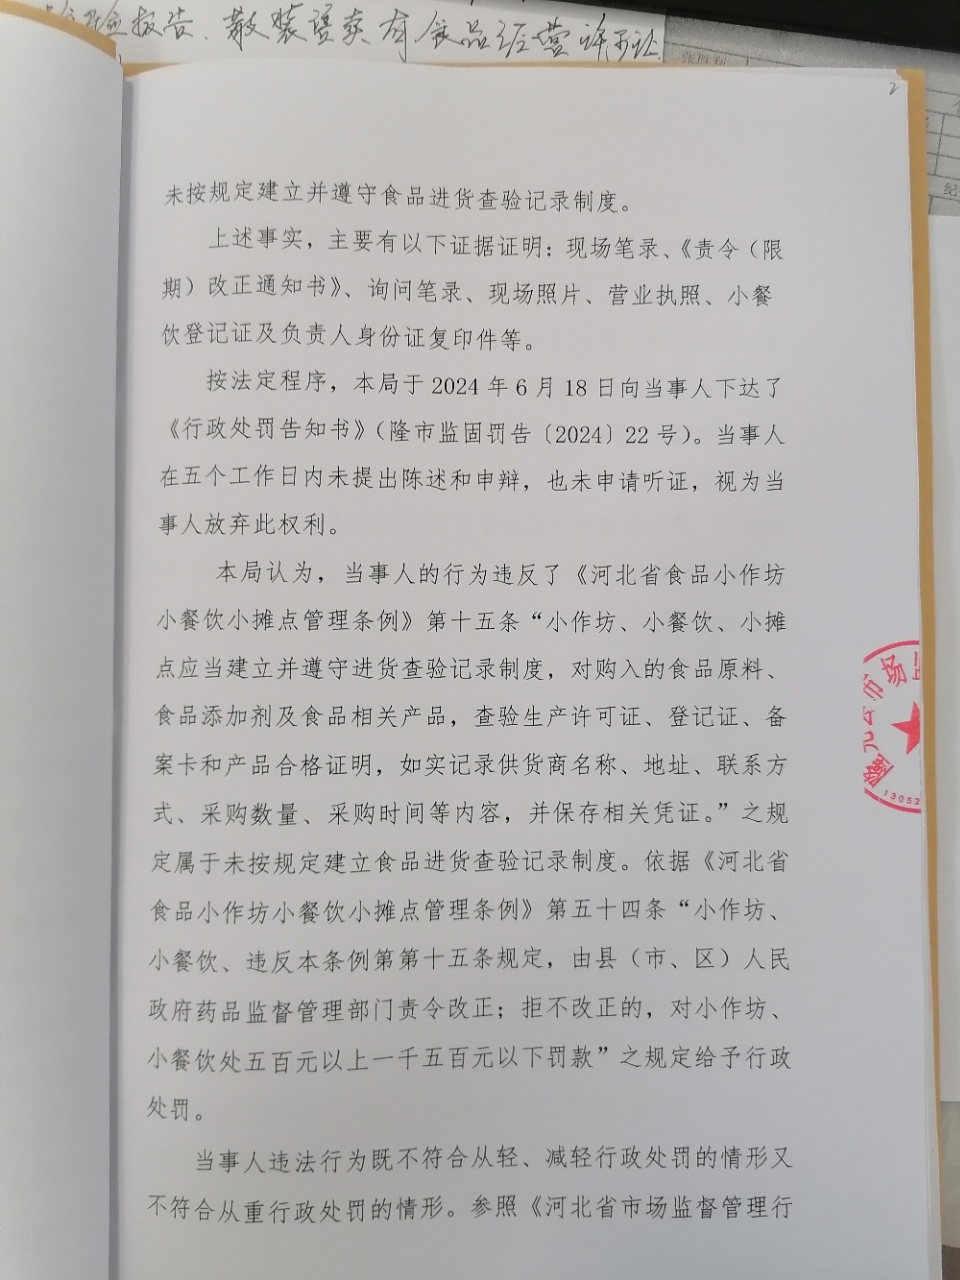 验报告、散装语卖有食品经营许可证
2
未按规定建立并遵守食品进货查验记录制度。
上述事实，主要有以下证据证明：现场笔录、《责令（限
期）改正通知书》、询问笔录、现场照片、营业执照、小餐
饮登记证及负责人身份证复印件等。
按法定程序，本局于 2024 年 6 月 18 日向当事人下达了
《行政处罚告知书》（隆市监固罚告〔2024〕22 号）。当事人
在五个工作日内未提出陈述和申辩，也未申请听证，视为当
事人放弃此权利。
本局认为，当事人的行为违反了《河北省食品小作坊
小餐饮小摊点管理条例》第十五条“小作坊、小餐饮、小摊
点应当建立并遵守进货查验记录制度，对购入的食品原料、
食品添加剂及食品相关产品，查验生产许可证、登记证、备
案卡和产品合格证明，如实记录供货商名称、地址、联系方
式、采购数量、采购时间等内容，并保存相关凭证。”之规
定属于未按规定建立食品进货查验记录制度。依据《河北省
食品小作坊小餐饮小摊点管理条例》第五十四条“小作坊、
小餐饮、违反本条例第第十五条规定，由县（市、区）人民
政府药品监督管理部门责令改正；拒不改正的，对小作坊、
小餐饮处五百元以上一千五百元以下罚款”之规定给予行政
处罚。
当事人违法行为既不符合从轻、减轻行政处罚的情形又
不符合从重行政处罚的情形。参照《河北省市场监督管理行
隆尧县市场监
13052
纪